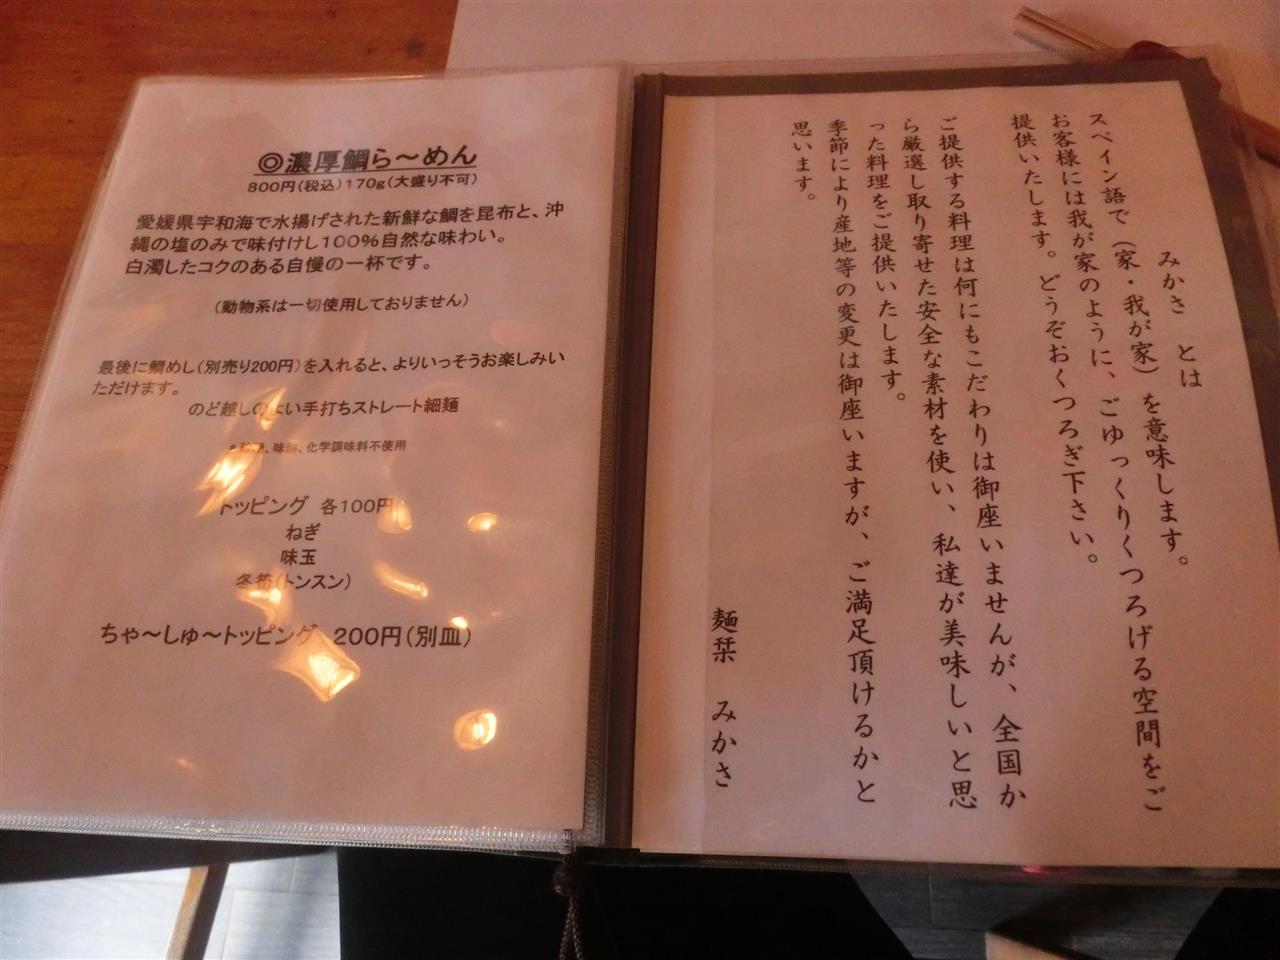 ◎濃厚鯛ら～めん
800円(税込)170g(大盛り不可)
愛媛県宇和海で水揚げされた新鮮な鯛を昆布と、沖
縄の塩のみで味付けし100%自然な味わい。
白濁したコクのある自慢の一杯です。
(動物系は一切使用しておりません)
最後に鯛めし(別売り200円)を入れると、よりいっそうお楽しみい
ただけます。
のど越しのよい手打ちストレート細麺
、化学調味料不使用
トッピング 各100円
ねぎ
味玉
冬筍(トンスン)
ちゃ～しゅ～トッピング 200円(別皿)
みかさ とは
スペイン語で(家・我が家)を意味します。
お客様には我が家のように、ごゆっくりくつろげる空間をご
提供いたします。どうぞおくつろぎ下さい。
ご提供する料理は何にもこだわりは御座いませんが、全国か
ら厳選し取り寄せた安全な素材を使い、私達が美味しいと思
った料理をご提供いたします。
季節により産地等の変更は御座いますが、ご満足頂けるかと
思います。
麺栞 みかさ